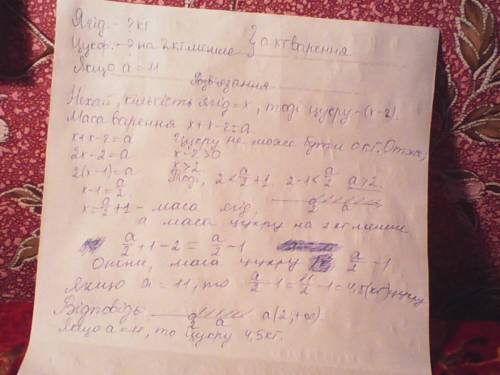 Ягід - ? кг
Цукор. - ? на 2кг менше } а кг варення
Якщо а = 11
Розв'язання
Нехай, кількість ягід = х, тоді цукру - (х-2).
Маса варення х+х-2=а.
х+х-2=а Цукру не може бути 0 кг. Отже,
2х-2=а х-2>0
2(х-1)=а х>2
х-1=a/2 Тоді, 2<a/2+1 2-1<a/2 a>2.
х=a/2+1 - маса ягід,
а маса цукру на 2 кг менше
a/2+1-2=a/2-1
Отже, маса цукру a/2-1
Якщо а = 11, то a/2-1=11/2-1=4,5(кг)-цукру
Відповідь a(2;+∞)
Якщо а=11, то цукру 4,5кг.